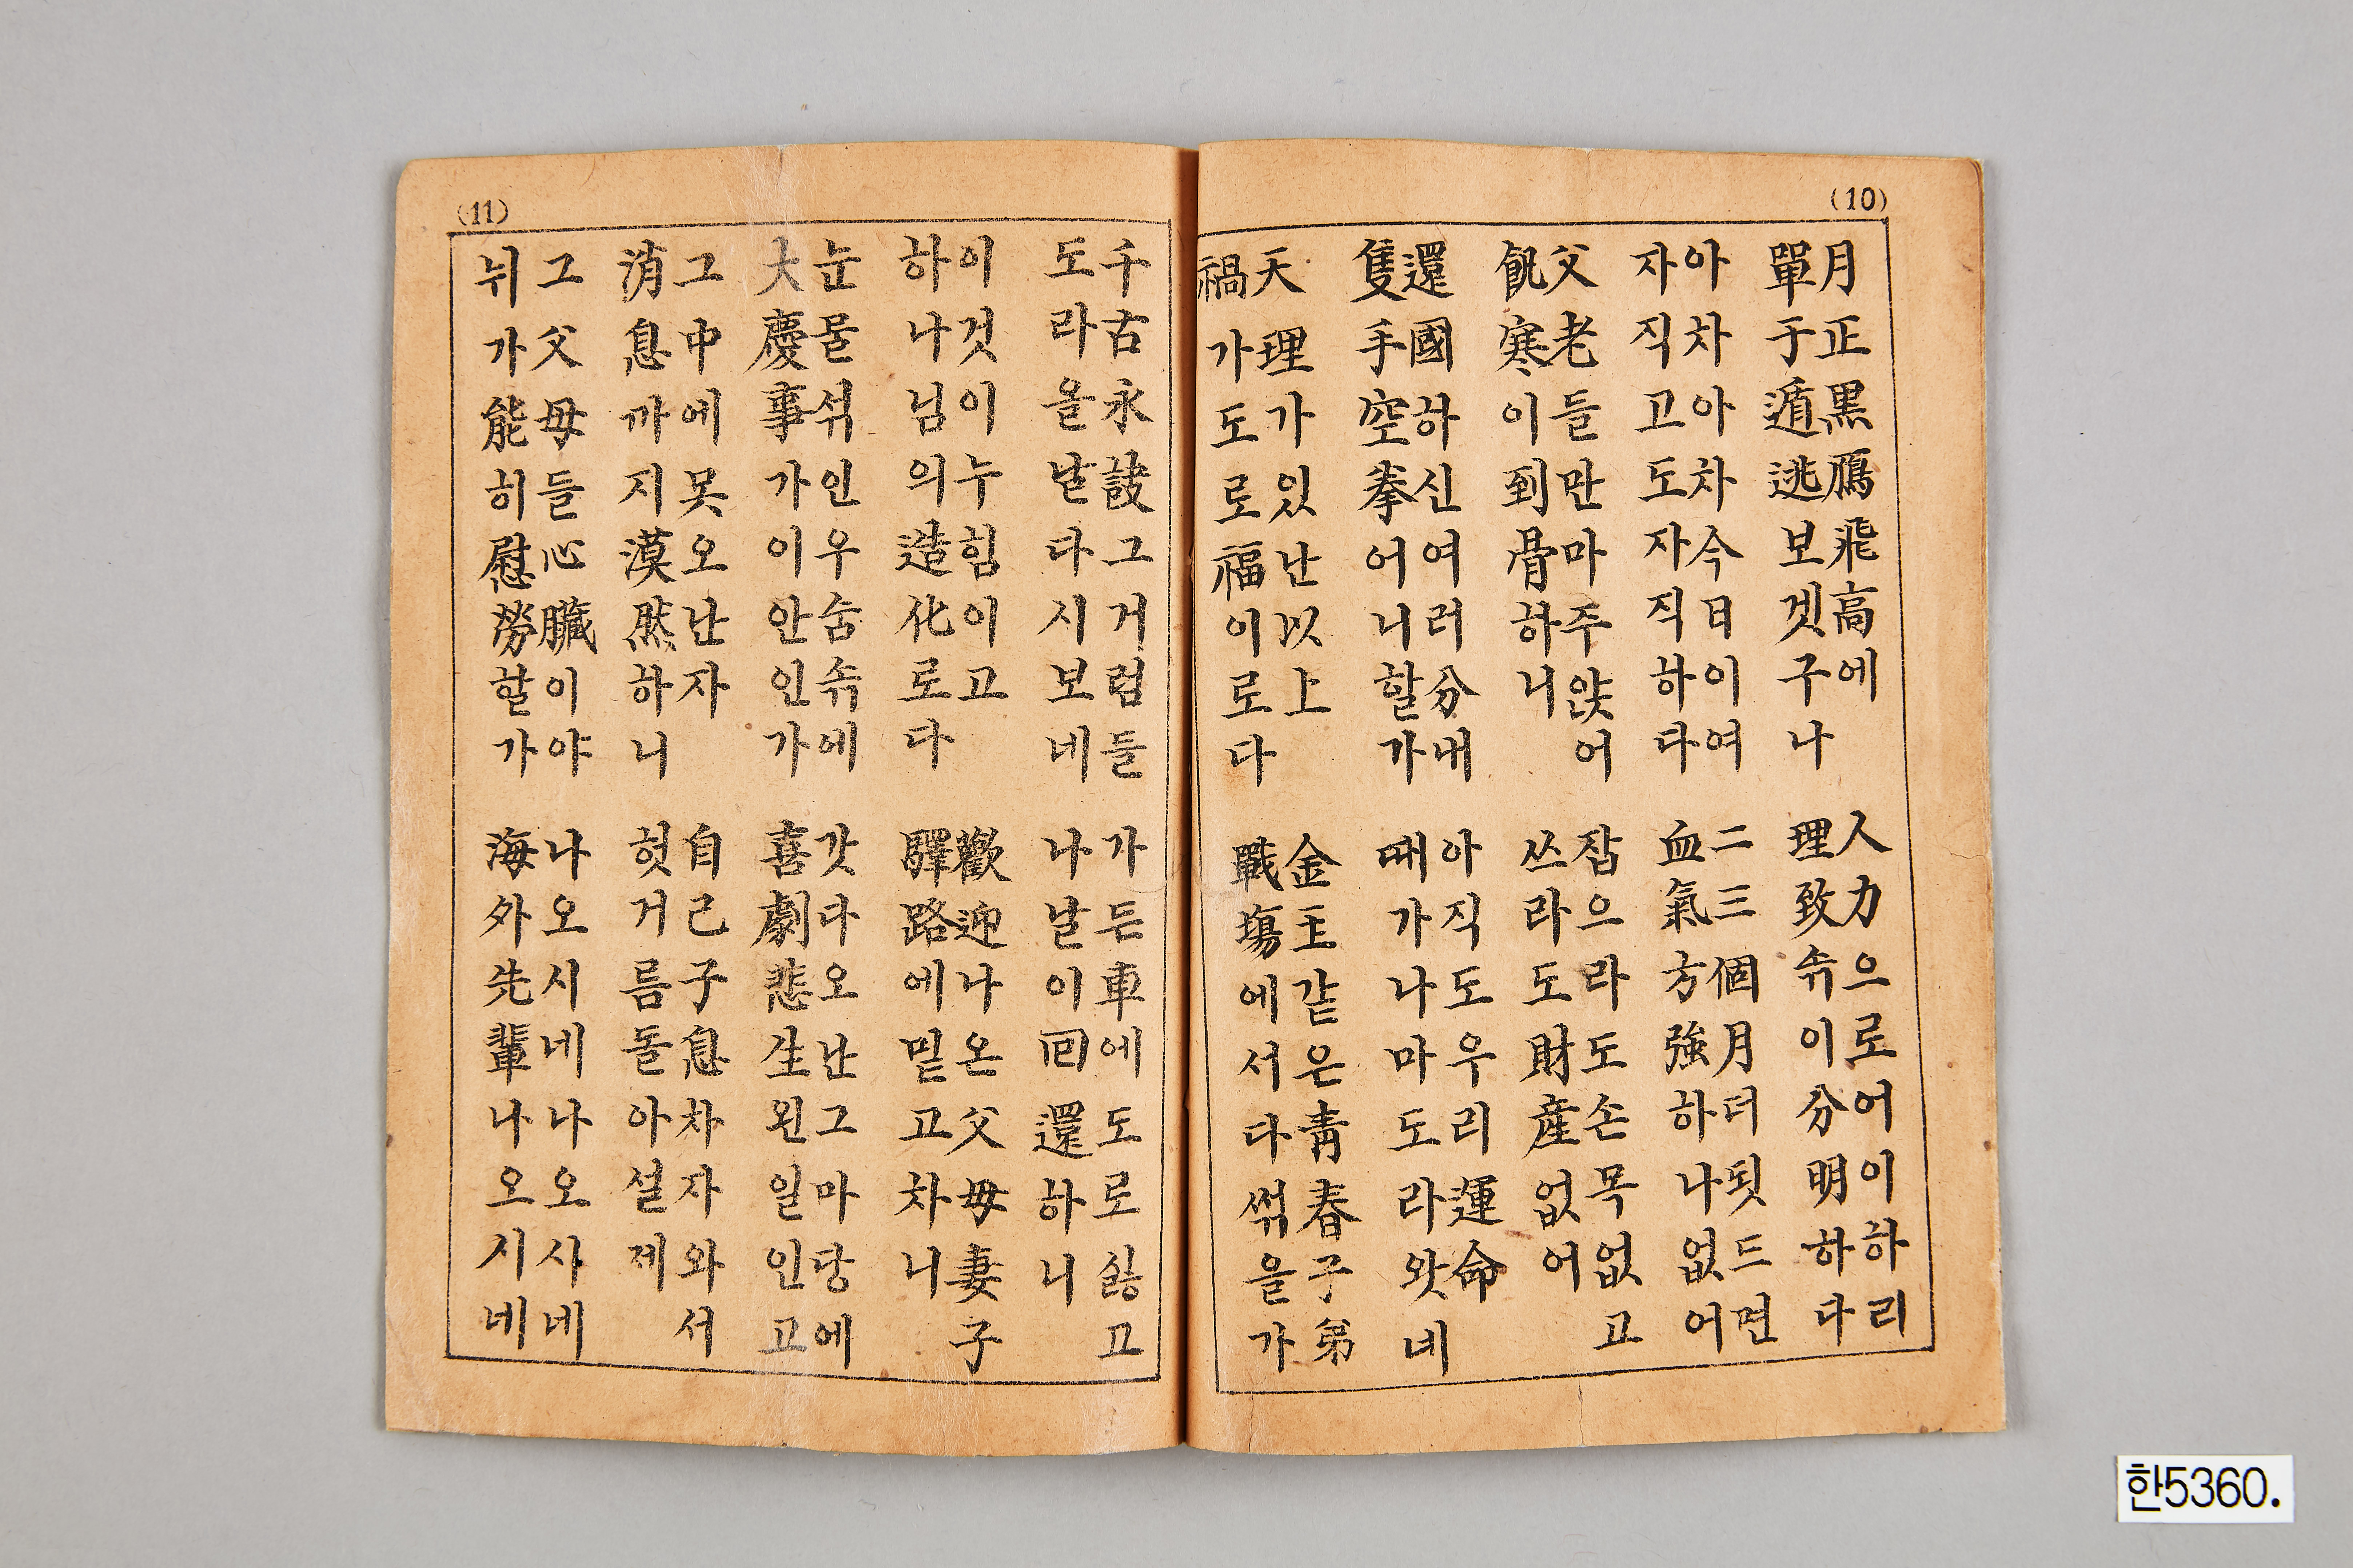 (10)
月正黑鴈飛高에
單于遁逃보겟구나
人力으로어이하리
理致솎이分明하다
아차아차今日이여
자직고도자직하다
二三個月더됫드면
血氣方強하나없어
父老들만마주앉어
飢寒이到骨하니
잡으라도손목없고
쓰라도財産없어
還國하신여러分내
隻手空拳어니할가
아직도우리運命
때가나마도라왓네
天理가있난以上
禍가도로福이로다
金主같은靑春子弟
戰塲에서다썪을가
(11)
千古永訣그거럼들
도라올날다시보네
가든車에도로싫고
나날이回還하니
이것이누힘이고
하나님의造化로다
歡迎나온父母妻子
驛路에밑고차니
눈물섞인우숨솎에
大慶事가이안인가
갓다오난그마당에
喜劇悲生왼일인고
그中에못오난자
消息까지漠然하니
自己子息차자와서
헛거름돌아설제
그父母들心臟이야
뉘가能히慰勞할가
나오시네나오사네
海外先輩나오시네
한5360.